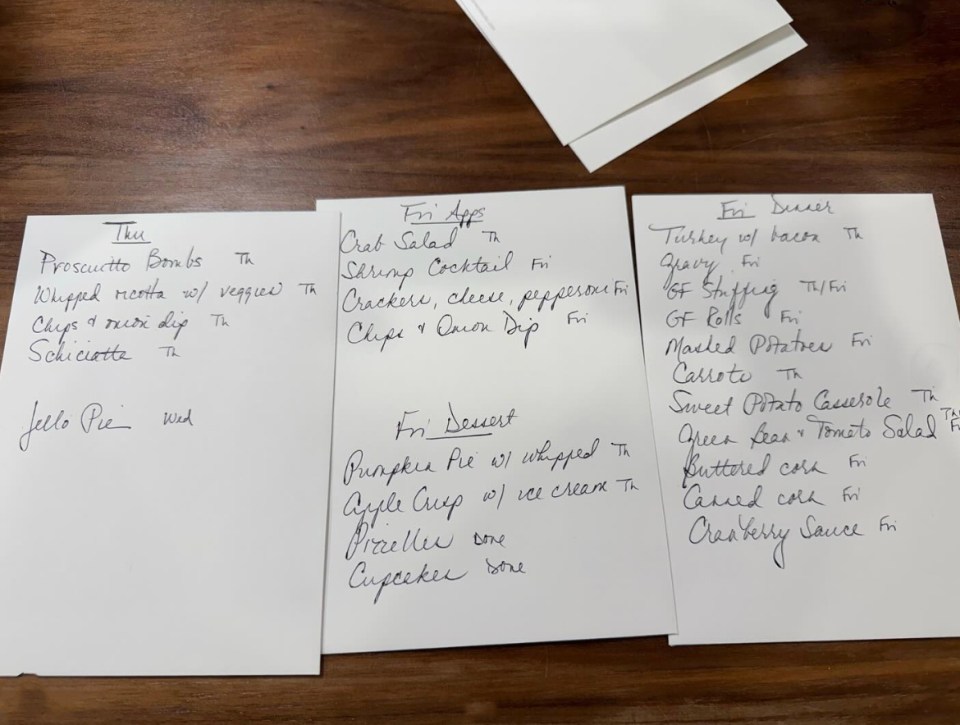 Thu
Proscuitto Bombs Th
Whipped ricotta w/ veggies Th
Chips & onion dip Th
Schiciatta Th
Jello Pie Wed
Fri Apps
Crab Salad Th
Shrimp Cocktail Fri
Crackers, cheese, pepperoni Fri
Chips & Onion Dip Fri
Fri Dessert
Pumpkin Pie w/ whipped Th
Apple Crisp w/ ice cream Th
Pizzelles Done
Cupcakes Done
Fri Dinner
Turkey w/ bacon Th
Gravy Fri
GF Stuffing Th/Fri
GF Rolls Fri
Mashed Potatoes Fri
Carrots Th
Sweet Potato Casserole Th
Green Bean & Tomato Salad
Buttered corn Fri
Canned corn Fri
Cranberry Sauce Fri